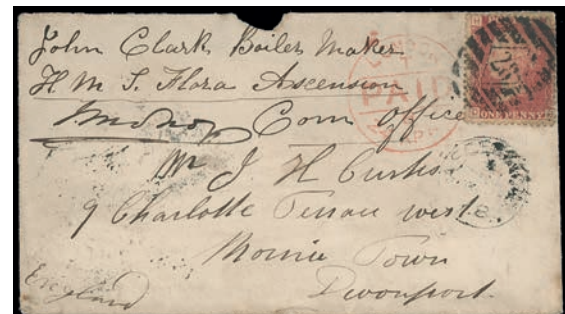 John Clark Boiler Maker
H M S Flora Ascension
Com Office
LONDON
PAID
ONE PENNY
Mr J H Curtis
9 Charlotte Terrace west
Morice Town
Devonport.
England